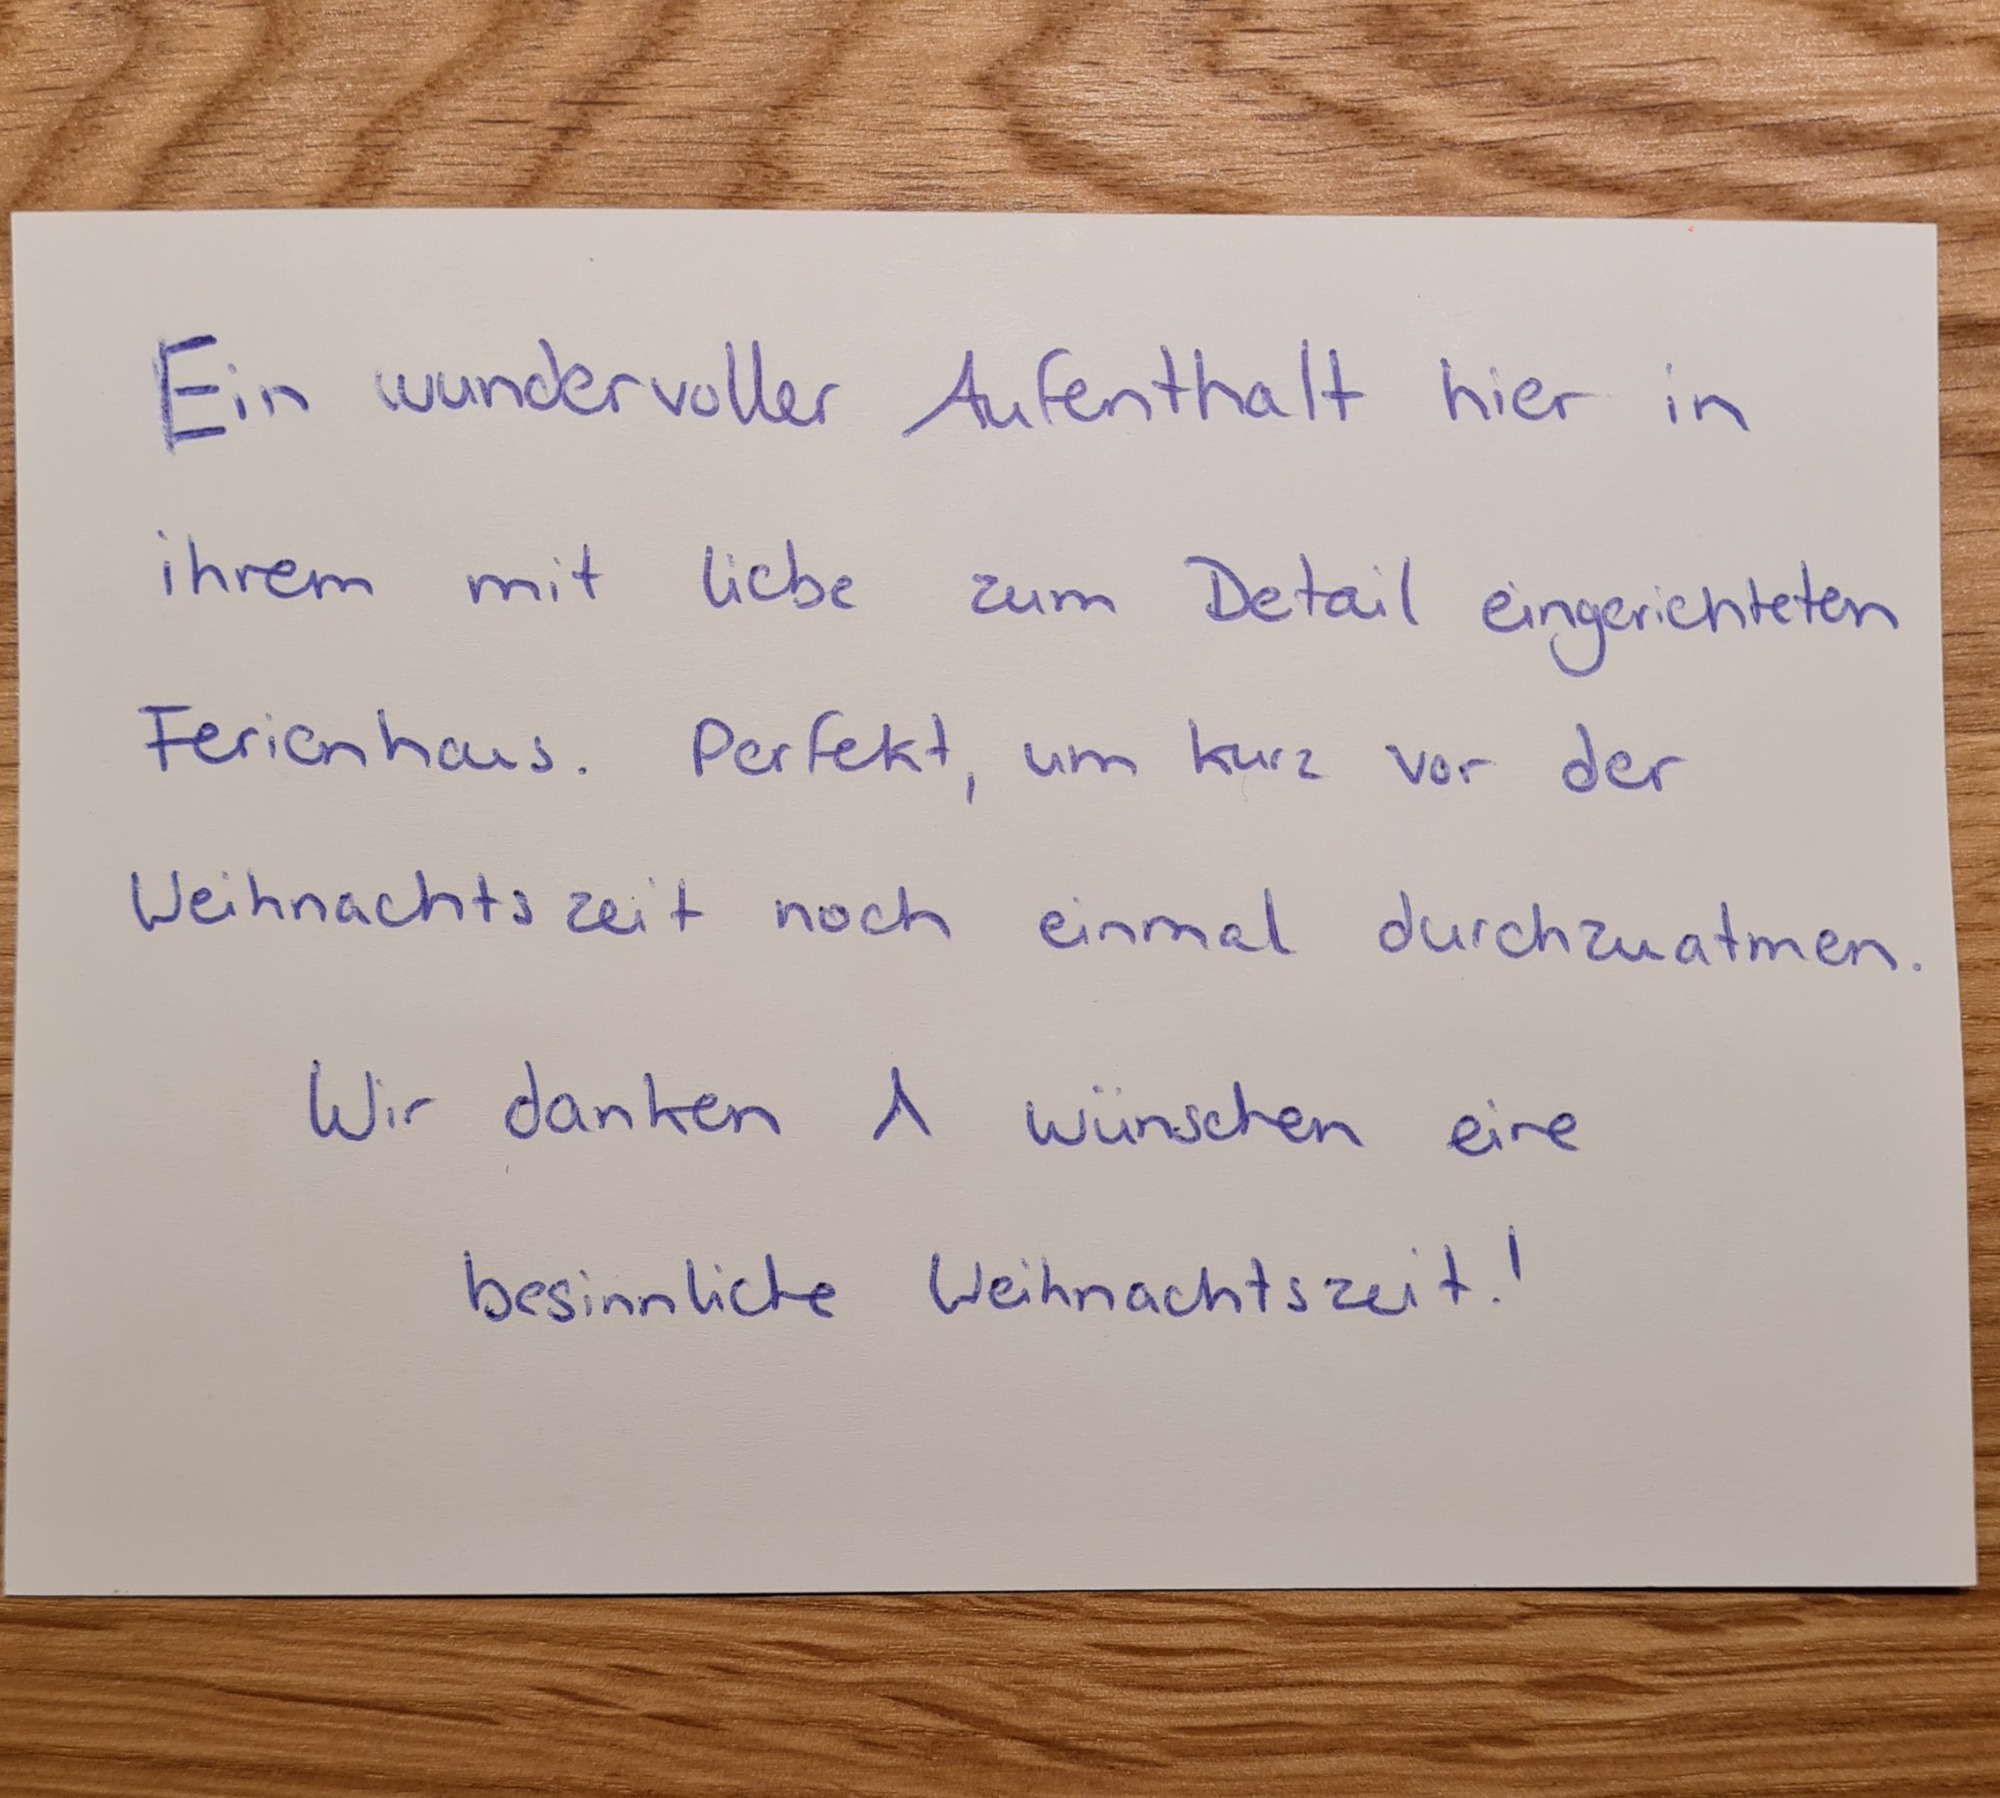 Ein wundervoller Aufenthalt hier in
ihrem mit liebe zum Detail eingerichteten
Ferienhaus. Perfekt, um kurz vor der
Weihnachtszeit noch einmal durchzuatmen.
Wir danken & wünschen eine
besinnliche Weihnachtszeit!